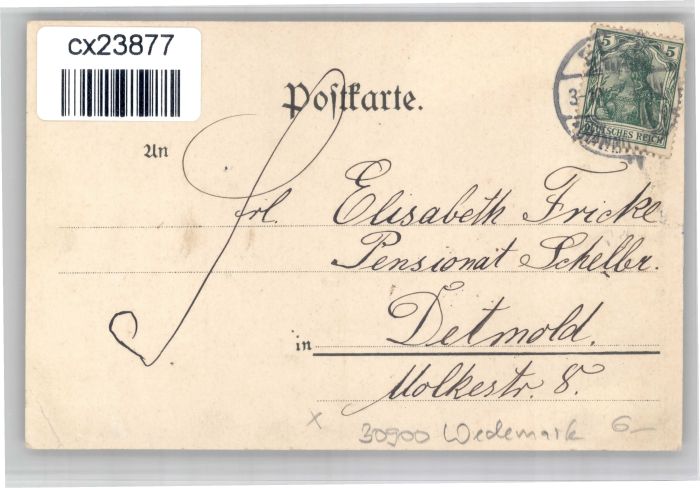 cx23877
Postkarte.
An
Frl. Elisabeth Fricke
Pensionat Schellbr.
in Detmold.
Molkestr. 8.
x 30900 Wedemark 6–
5 5
DEUTSCHES REICH